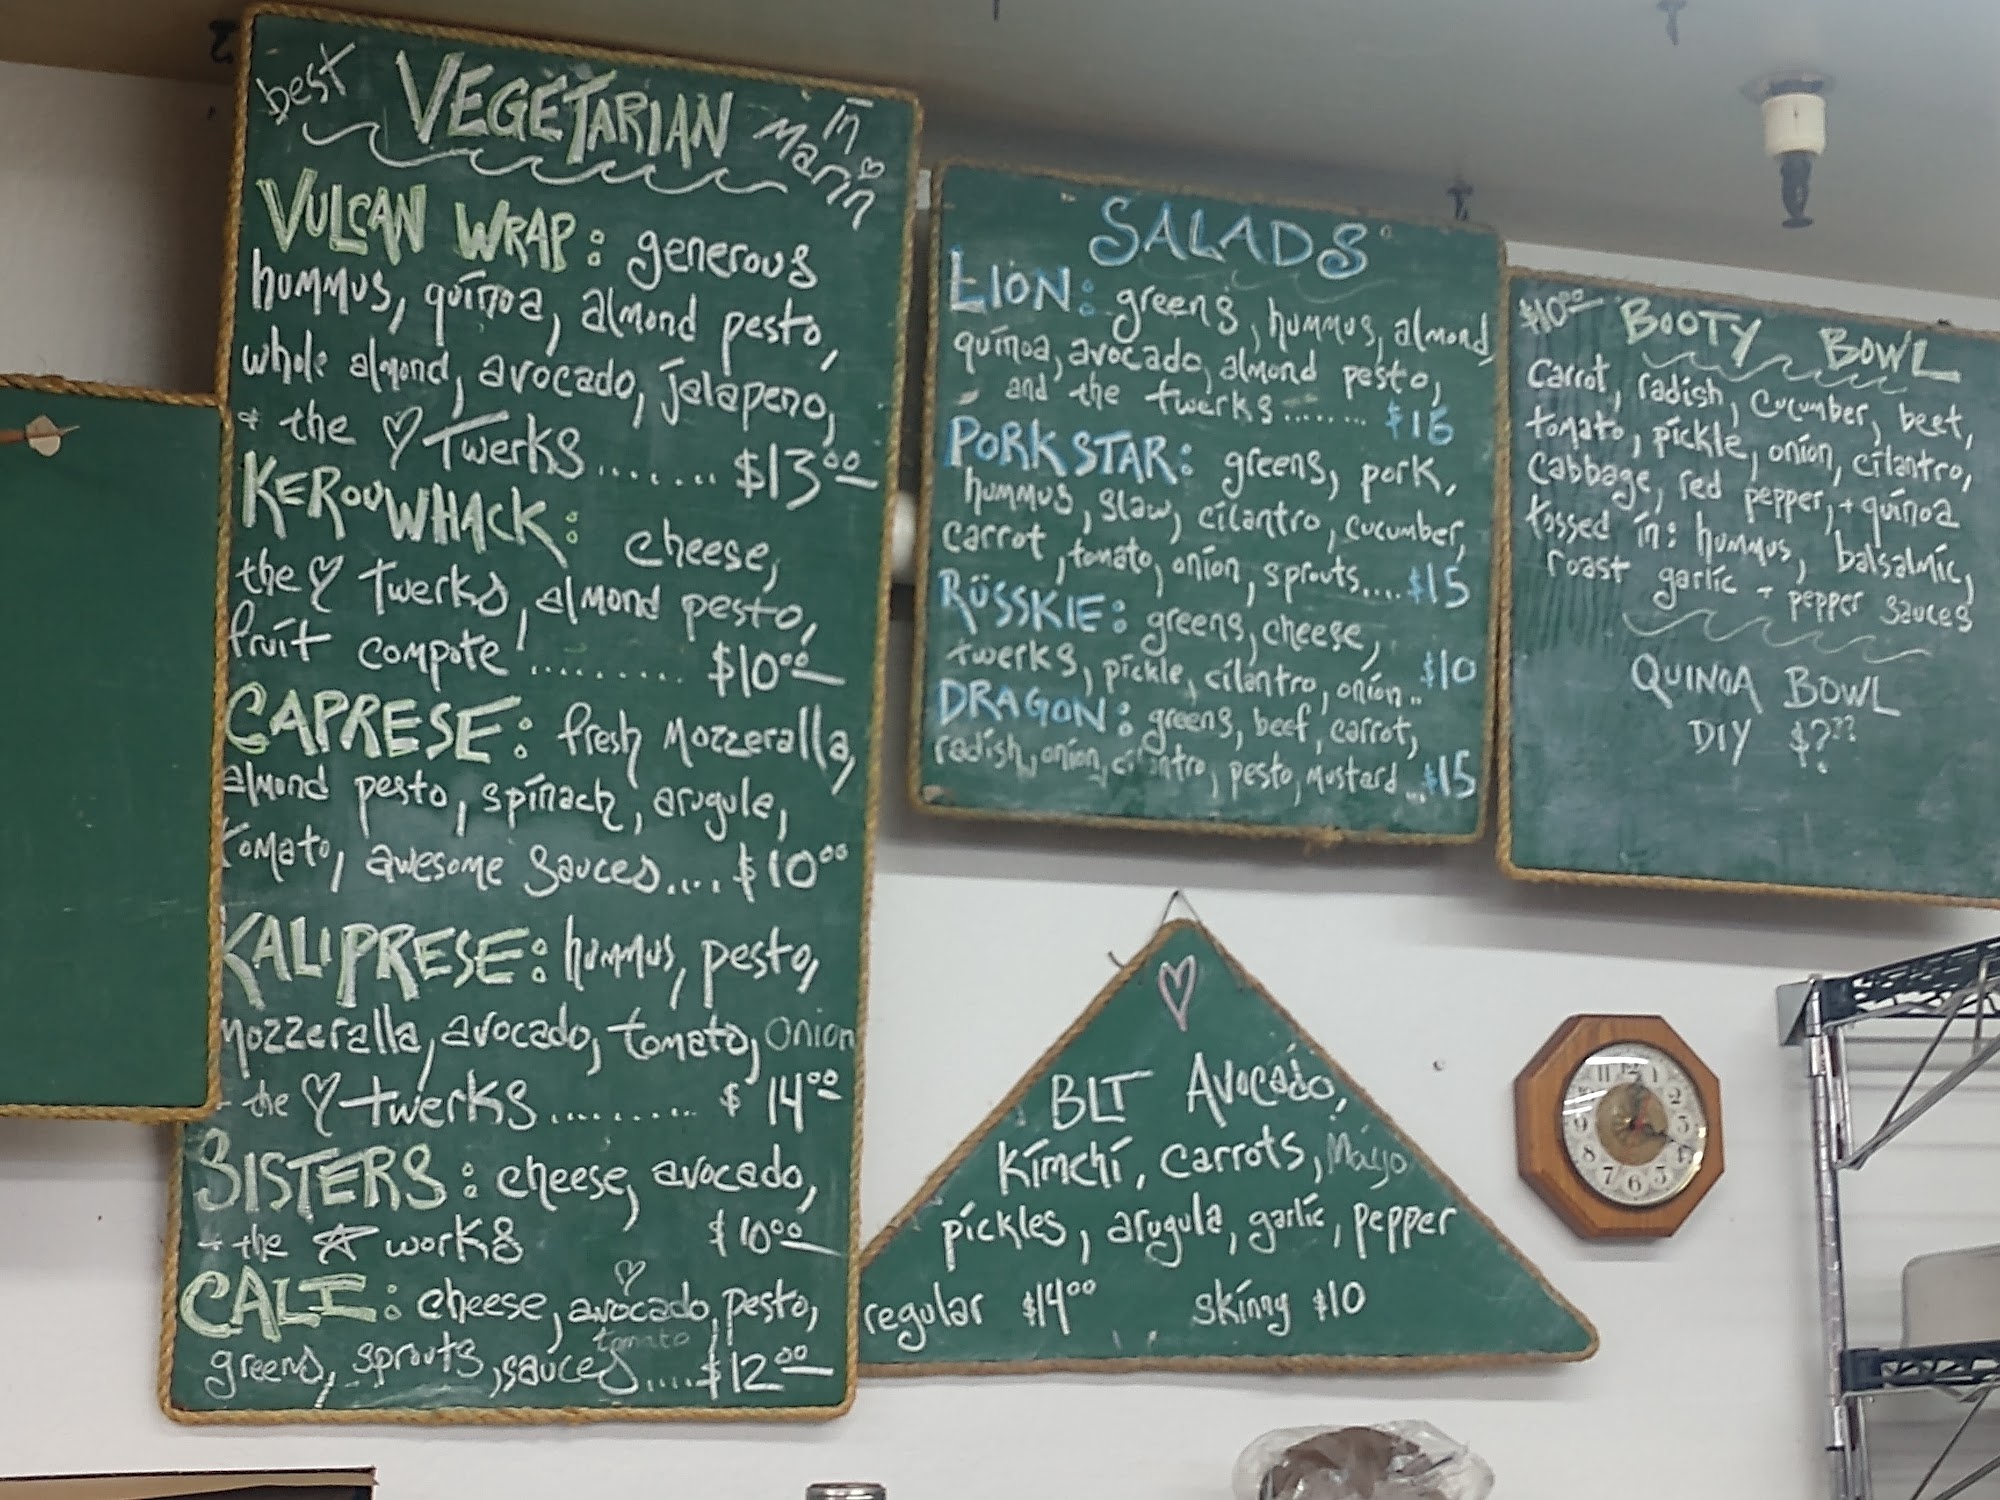 best VEGETARIAN in Marin
VULCAN WRAP: generous
hummus, quinoa, almond pesto,
whole almond, avocado, jalapeno,
+ the ♡ Twerks........ $13.00
KEROUWHACK: cheese,
the ♡ twerks, almond pesto,
fruit compote ......... $10.00
CAPRESE: fresh mozzeralla,
almond pesto, spinach, arugule,
tomato, awesome sauces.... $10.00
KALIPRESE: hummus, pesto,
mozzeralla, avocado, tomato, onion
+ the ♡ twerks.......... $14.00
SISTERS: cheese, avocado,
+ the ☆ works $10.00
CALI: cheese, avocado, pesto,
tomato
greens, sprouts, sauces.... $12.00
SALADS
LION: greens, hummus, almond,
quinoa, avocado, almond pesto,
and the twerks........ $16
PORKSTAR: greens, pork,
hummus, slaw, cilantro, cucumber,
carrot, tomato, onion, sprouts.... $15
RÜSSKIE: greens, cheese,
twerks, pickle, cilantro, onion.. $10
DRAGON: greens, beef, carrot,
radish, onion, cilantro, pesto, mustard... $15
$10.00 BOOTY BOWL
carrot, radish, cucumber, beet,
tomato, pickle, onion, cilantro,
cabbage, red pepper, + quinoa
tossed in: hummus, balsalmic,
roast garlic + pepper sauces
QUINOA BOWL
DIY $???
BLT Avocado,
Kimchi, carrots, Mayo
pickles, arugula, garlic, pepper
regular $14.00 skinny $10
11 12 1 2 3 4 5 6 7 8 9